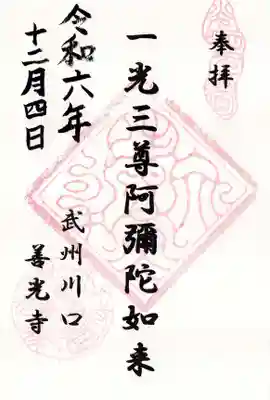 奉拝
一光三尊阿彌陀如来
武州川口
善光寺
令和六年
十二月四日